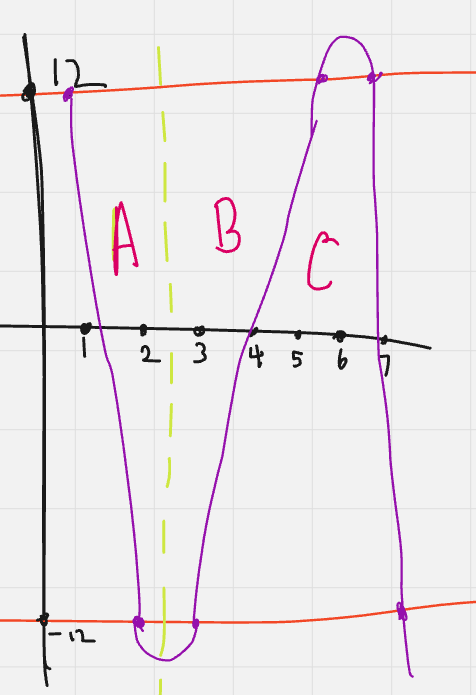 12
A B C
1 2 3 4 5 6 7
-12